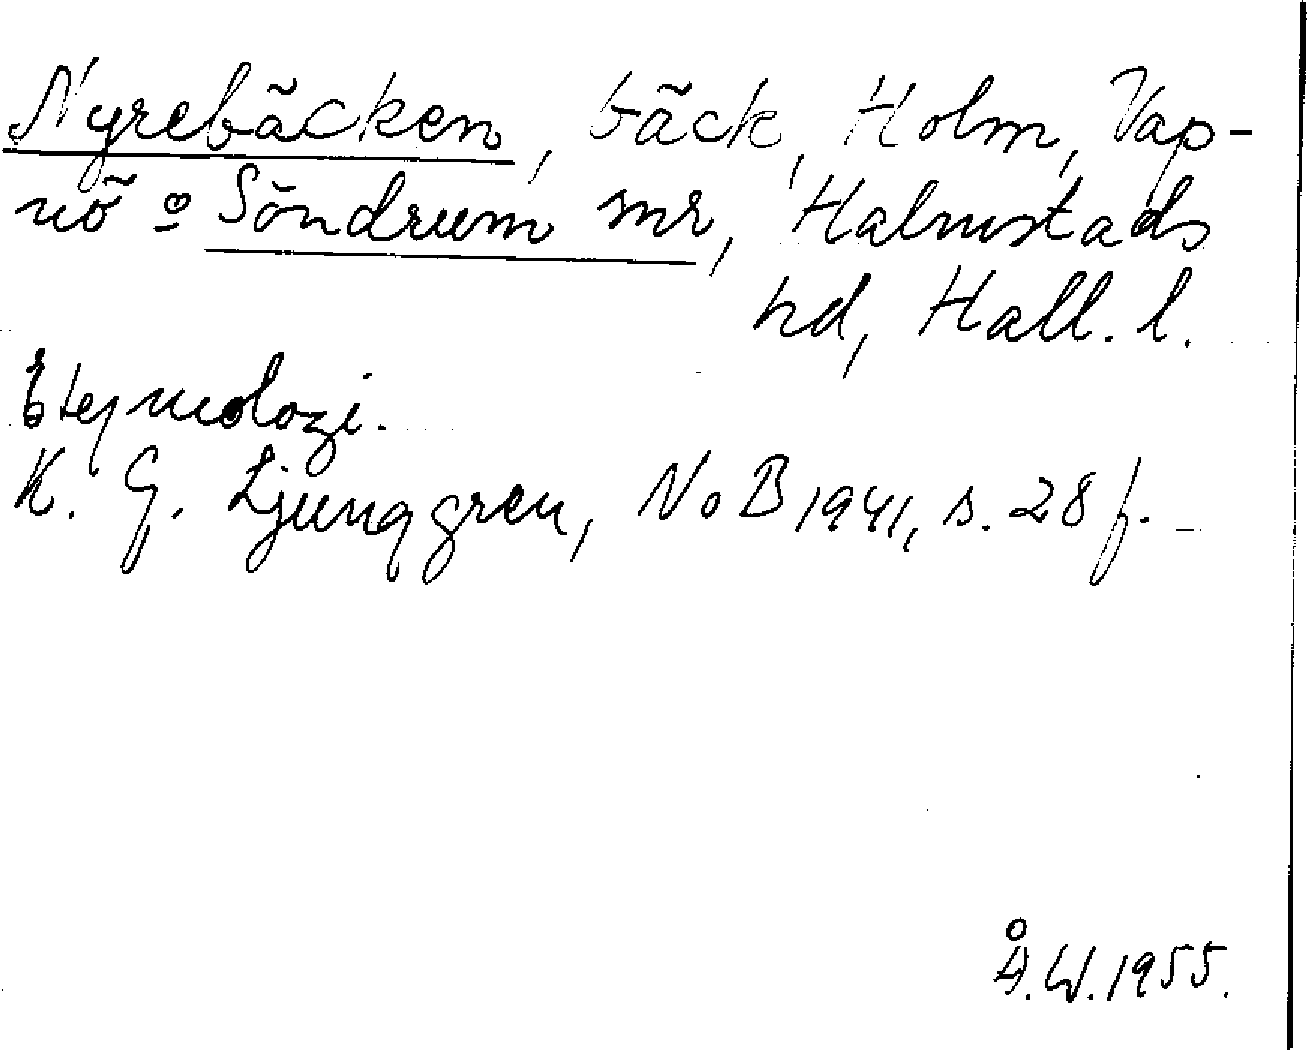 Nyrebäcken, bäck, Holm, Vap-
nö o Söndrum snr, Halmstads
hd, Hall. l.
Etymologi.
K. G. Ljunggren, NoB 1941, s. 28 f.
Å.W. 1955.